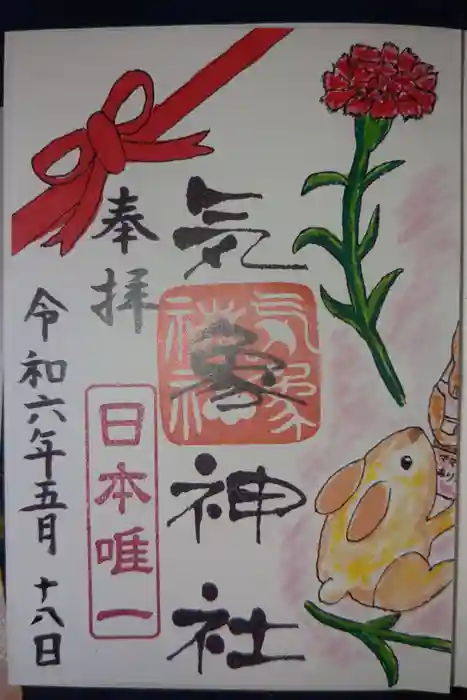 気象神社
気象神社
奉拝
日本唯一
令和六年五月十八日